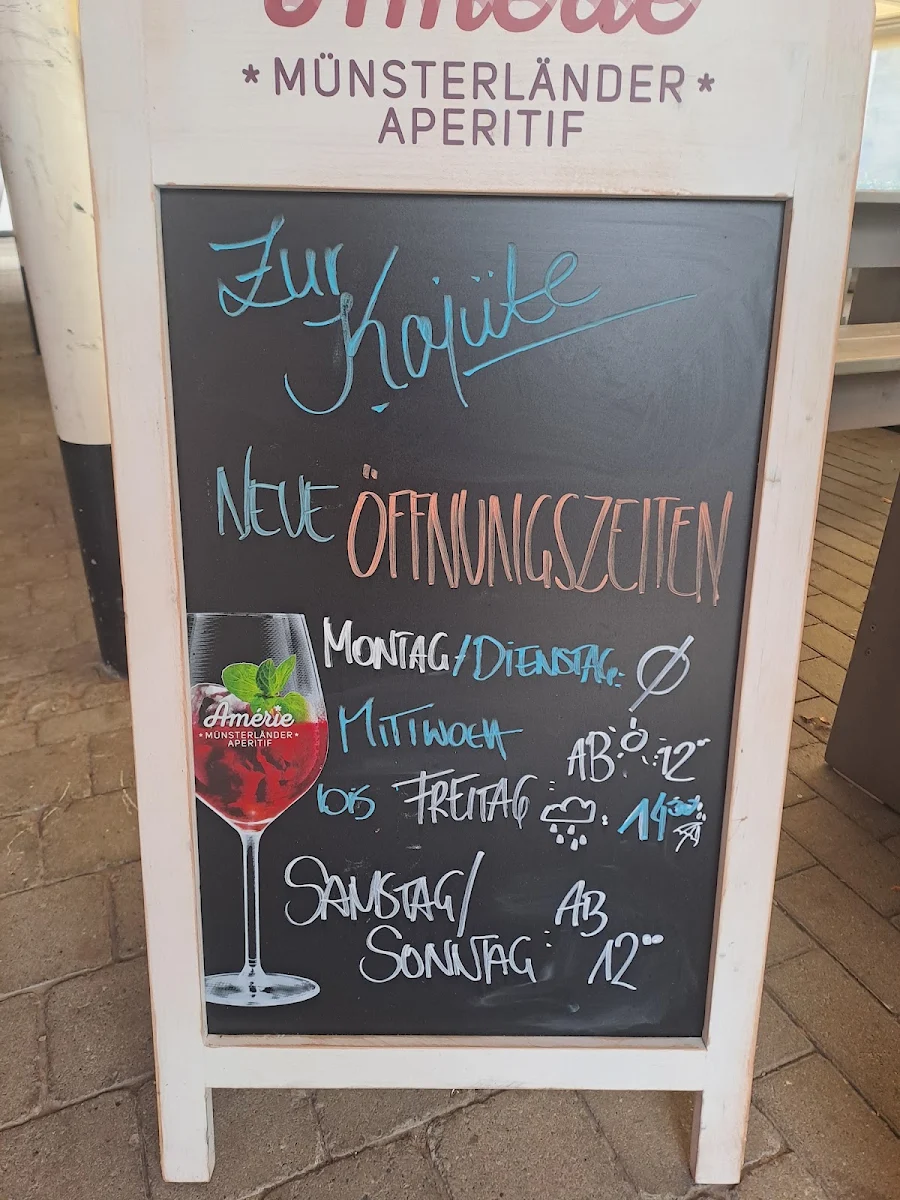 Amérie
* MÜNSTERLÄNDER *
APERITIF
Zur
Kajüte
NEUE ÖFFNUNGSZEITEN
MONTAG/DIENSTAG: Ø
MITTWOCH
AB 12⁰⁰
bis FREITAG : 14³⁰
Amérie
*MÜNSTERLÄNDER*
APERITIF
SAMSTAG/ AB
SONNTAG : 12⁰⁰